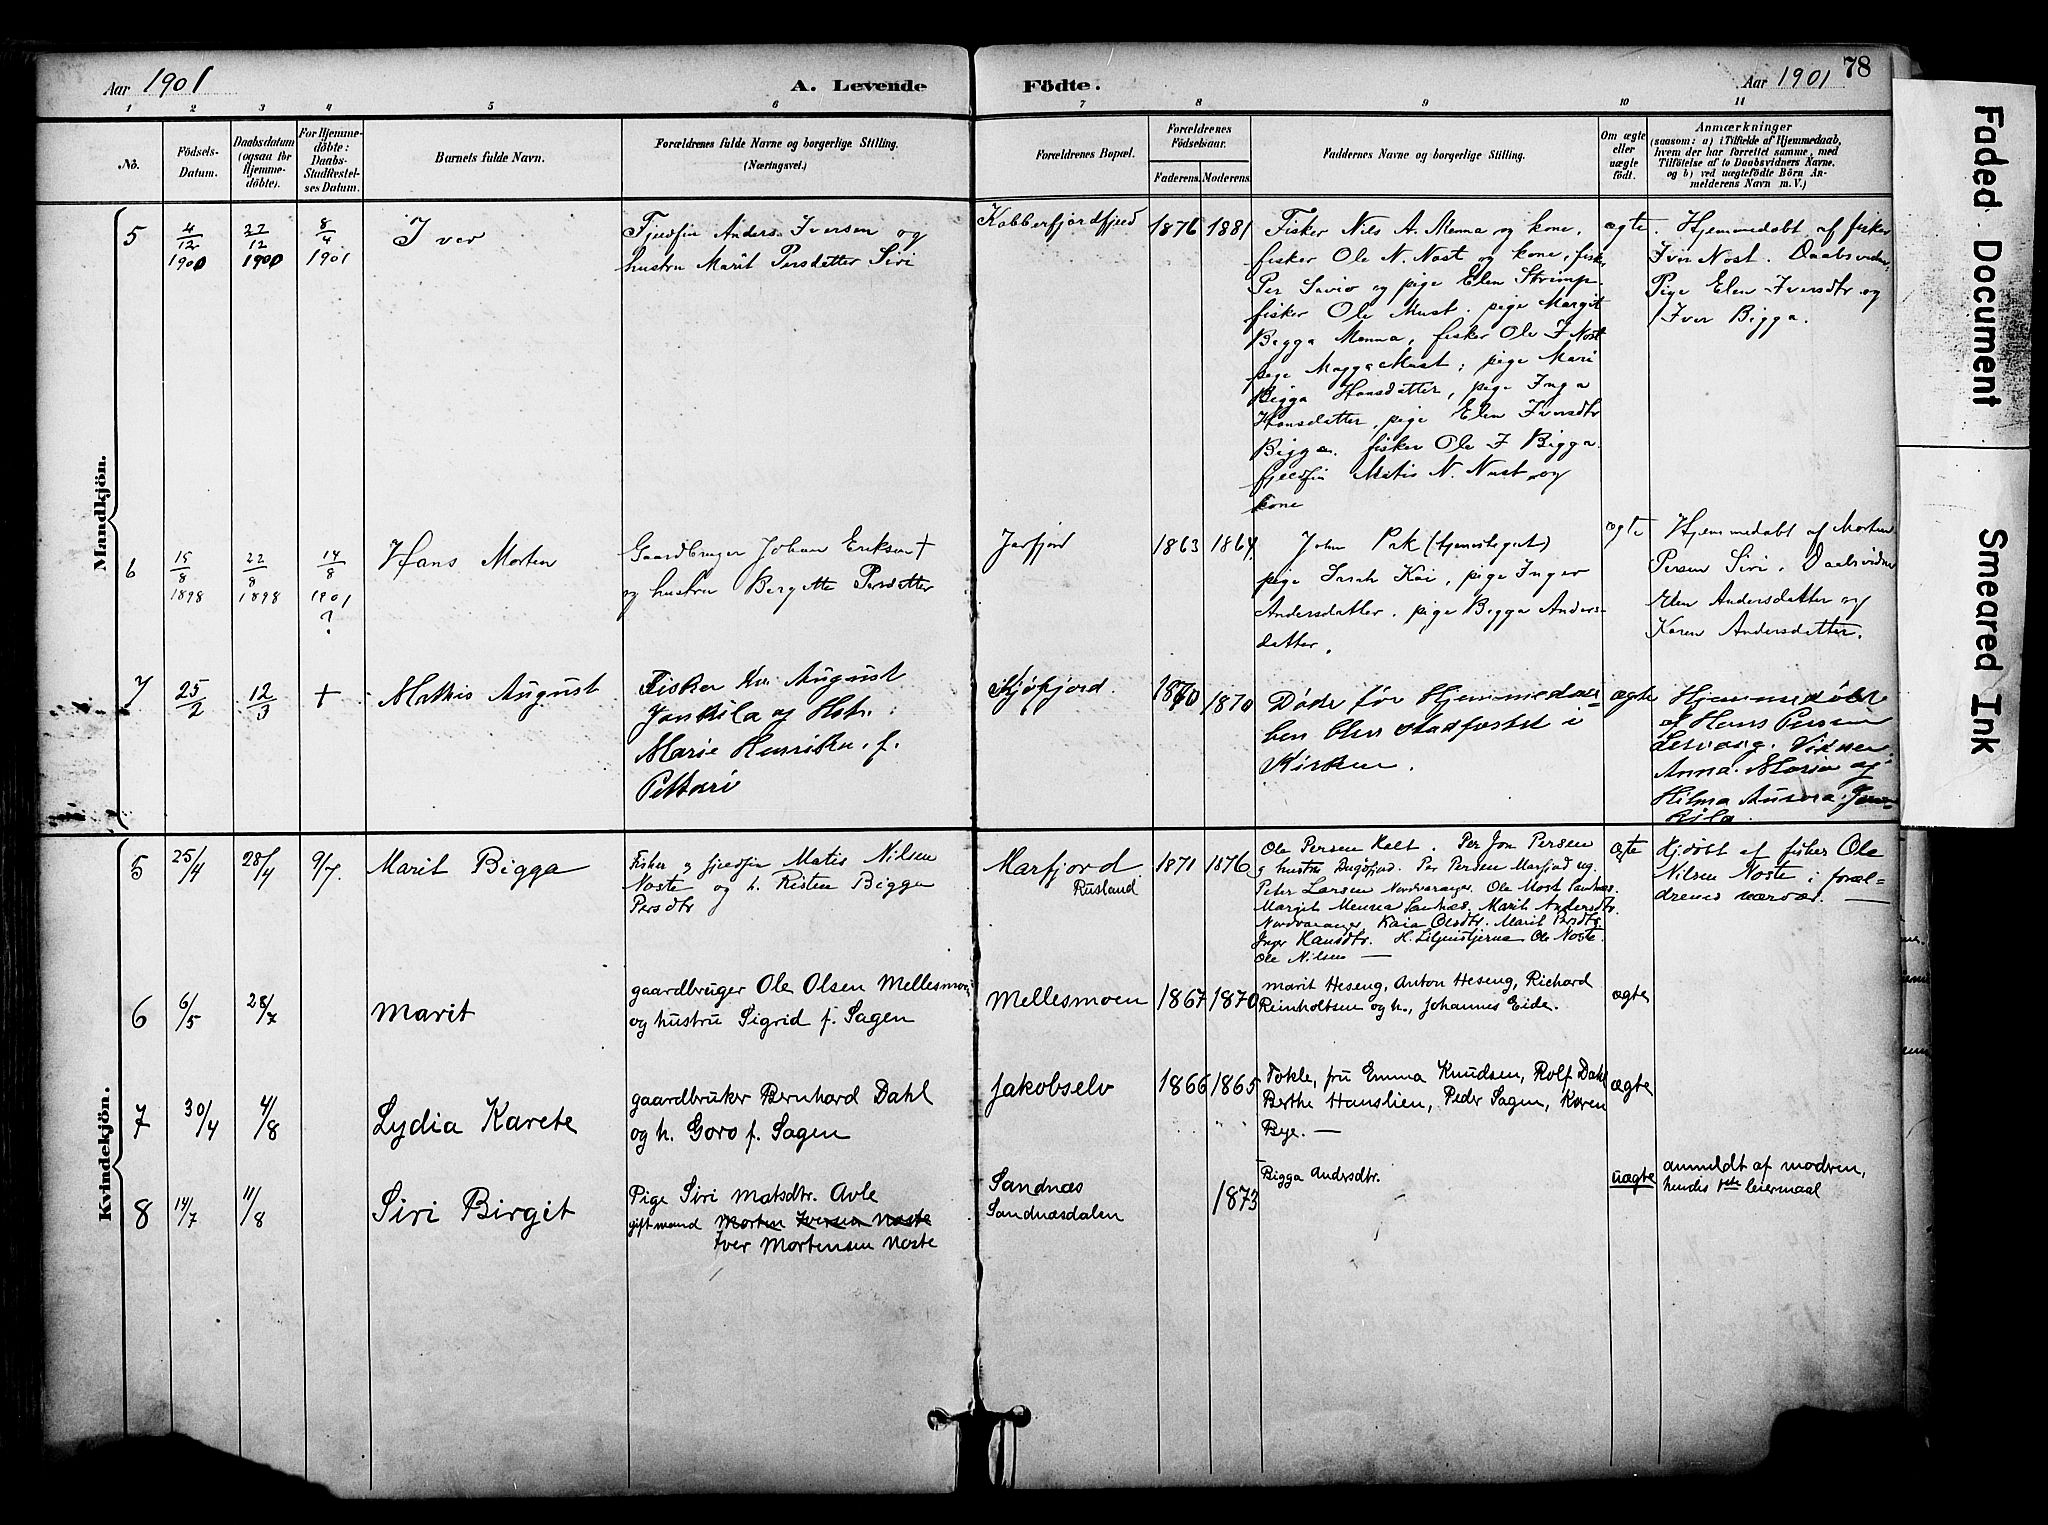 Aar 1901
A. Levende
Födte.
Aar 1901
78
1 2 3 4 5 6 7 8 9 10 11
No.
Födsels-
Datum.
Daabsdatum
(ogsaa for
Hjemme-
döbte).
For Hjemme-
döbte:
Daabs-
Stadfæstel-
ses Datum.
Barnets fulde Navn.
Forældrenes fulde Navne og borgerlige Stilling.
(Næringsvei.)
Forældrenes Bopæl.
Forældrenes
Födselsaar.
Faderens. Moderens.
Faddernes Navne og borgerlige Stilling.
Om ægte
eller
uægte
födt.
Anmærkninger
(saasom: a) i Tilfælde af Hjemmedaab,
hvem der har forrettet samme, med
Tilföielse af to Daabsvidners Navne,
og b) ved uægtefödte Börn An-
melderens Navn m. V.)
Mandkjön.
5
4/12 1900
27/12 1900
8/4 1901
Iver
Fjeldfin Anders Iversen og
hustru Marit Persdatter Siri
Kobberfjordfjeld
1876 1881
Fisker Nils A. Menna og kone,
fisker Ole N. Nost og kone, fisker
Per Savio og pige Elen Strimp.
fisker Ole Must. pige Margit
Bigga Menna, fisker Ole I Nost
pige Magga Must; pige Mari
Bigga Hansdatter, pige Inga
Hansdatter, pige Elen Iversdtr
Bigga. fisker Ole I Bigga.
fjeldfin Matis N. Nust og
kone
ægte.
Hjemmedøbt af fisker
Iver Nost. Daabsvidner
Pige Elen Iversdtr og
Iver Bigga.
6
15/8 1898
22/8 1898
14/8 1901
?
Hans Morten
Gaardbruger Johan Eriksen +
og hustru Bergitte Persdatter
Jarfjord
1863 1864
John Pak (tjenestegut)
pige Sarah Kai, pige Inger
Andersdatter, pige Bigga Anders-
datter.
ægte
Hjemmedøbt af Morten
Persen Siri. Daabsvidner
Elen Andersdatter og
Karen Andersdatter.
7
25/2
12/3
+
Mathis August
Fisker Kv. August
Jankila og Hst.
Marie Henrikke f.
Pettari
Kjøfjord.
1870 1870
Døde før Hjemmedaa-
ben blev stadfæstet i
Kirken.
ægte
Hjemmedøbt
af Hans Persen
Vidner
Anna Maria og
Hilma Aurora Jan-
kila
Kvindekjön.
5
25/4
28/4
9/7.
Marit Bigga
Fisker og fjeldfin Matis Nilsen
Noste og h. Kisten Bigga
Persdtr
Marfjord
Rusland
1871 1876
Ole Persen Kalt. Per Jon Persen
og hustru Bugöfjord. Per Persen Marfjord og
Peter Larsen Nordvaranger. Ole Most Sandnæs.
Margit Menna Sandnæs. Marit Andersdtr.
Nordvaranger, Kaia Olsdtr. Marit Persdtr.
Inger Hansdtr. H. Liljenstjerna Ole Noste.
Ole Nilsen —
ægte
Hjdöbt af fisker Ole
Nilsen Noste i foræl-
drenes nærvær. —
6
6/5
28/7
Marit
gaardbruger Ole Olsen Mellesmoen
og hustru Sigrid f. Sagen
Mellesmoen
1867 1870
Marit Heseng, Anton Heseng, Richard
Reinholtsen og h., Johannes Eide.
ægte
7
30/4
4/8
Lydia Karete
gaardbruker Bernhard Dahl
og h. Goro f. Sagen
Jakobselv
1866 1865
Tokle, fru Emma Knudsen, Rolf Dahl
Berthe Hanslien, Peder Sagen, Karen
Bye. —
ægte
8
14/7
11/8
Siri Birgit
Pige Siri Matsdtr. Avle
gift mand Morten Iversen Noste
Iver Mortensen Noste
Sandnæs
Sandnæsdalen
1873
Bigga Andersdtr.
uægte
anmeldt af modren,
hendes 1ste leiermaal
Faded Document
Smeared Ink